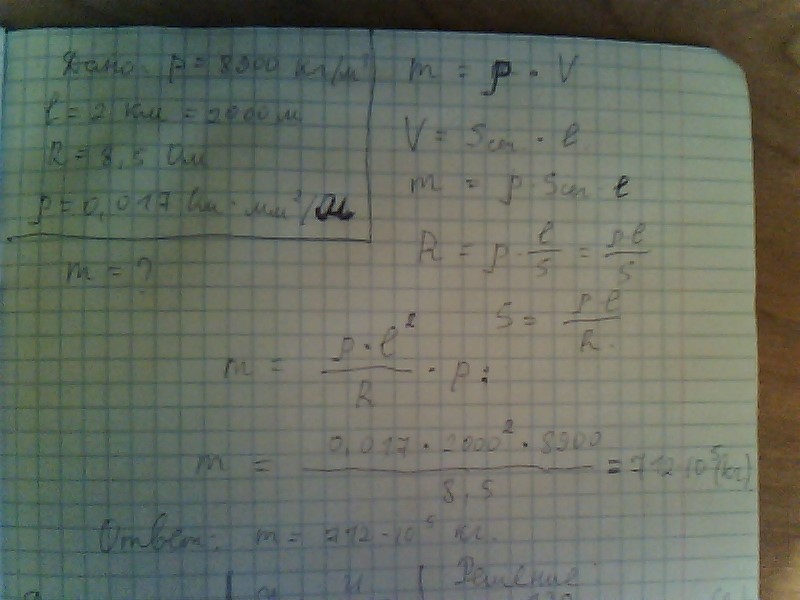 Дано: ρ = 8900 кг/м³
l = 2 км = 2000 м
R = 8,5 Ом
ρ = 0,017 Ом · мм²/м
m = ?
m = ρ · V
V = Sсеч · l
m = ρ · Sсеч · l
R = ρ · l/S = ρl/S
S = ρ·l/R.
m = ρ·l²/R · ρ:
m = 0,017 · 2000² · 8900 / 8,5 = 712·10⁵(кг)
Ответ: m = 712·10⁵ кг.
Решение